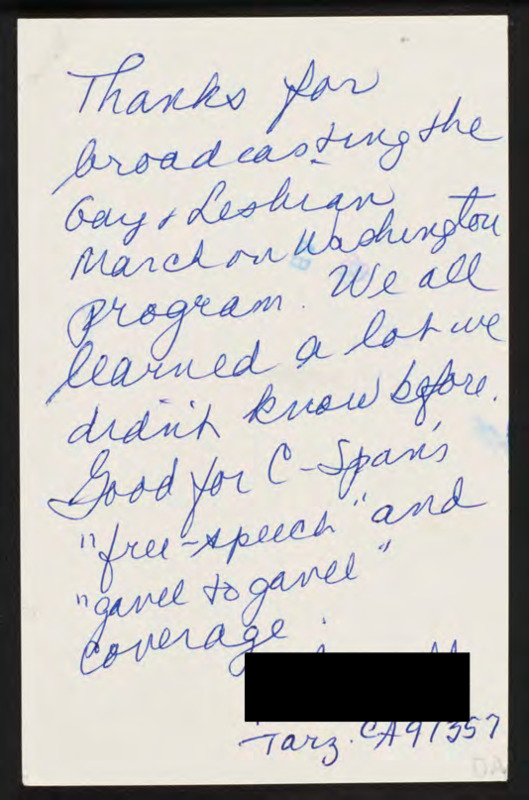 Thanks for
broadcasting the
Gay & Lesbian
March on Washington
program. We all
learned a lot we
didn't know before.
Good for C-Span's
"free-speech" and
"gavel to gavel"
coverage.
Tarz. CA 91357